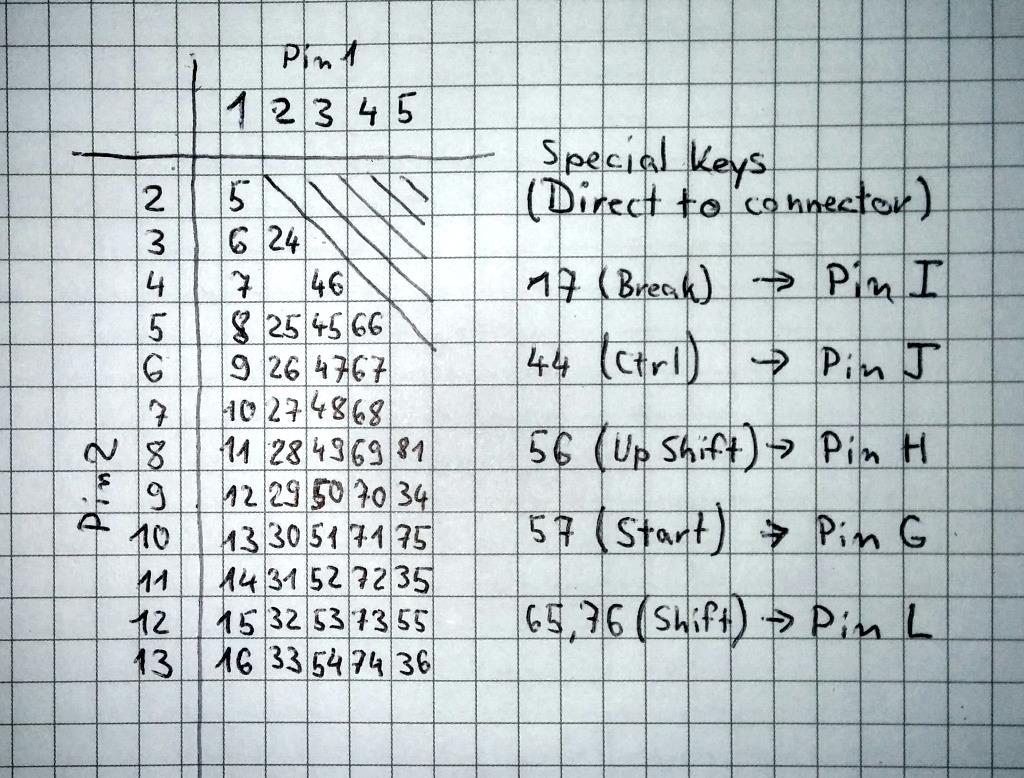 Pin 1
1 2 3 4 5
Special Keys
(Direct to connector)
2 5
3 6 24
4 7 46
17 (Break) → Pin I
5 8 25 45 66
6 9 26 47 67
44 (Ctrl) → Pin J
7 10 27 48 68
Pin 2
8 11 28 49 69 81
56 (Up Shift) → Pin H
9 12 29 50 70 34
10 13 30 51 71 75
57 (Start) → Pin G
11 14 31 52 72 35
12 15 32 53 73 55
65,76 (Shift) → Pin L
13 16 33 54 74 36